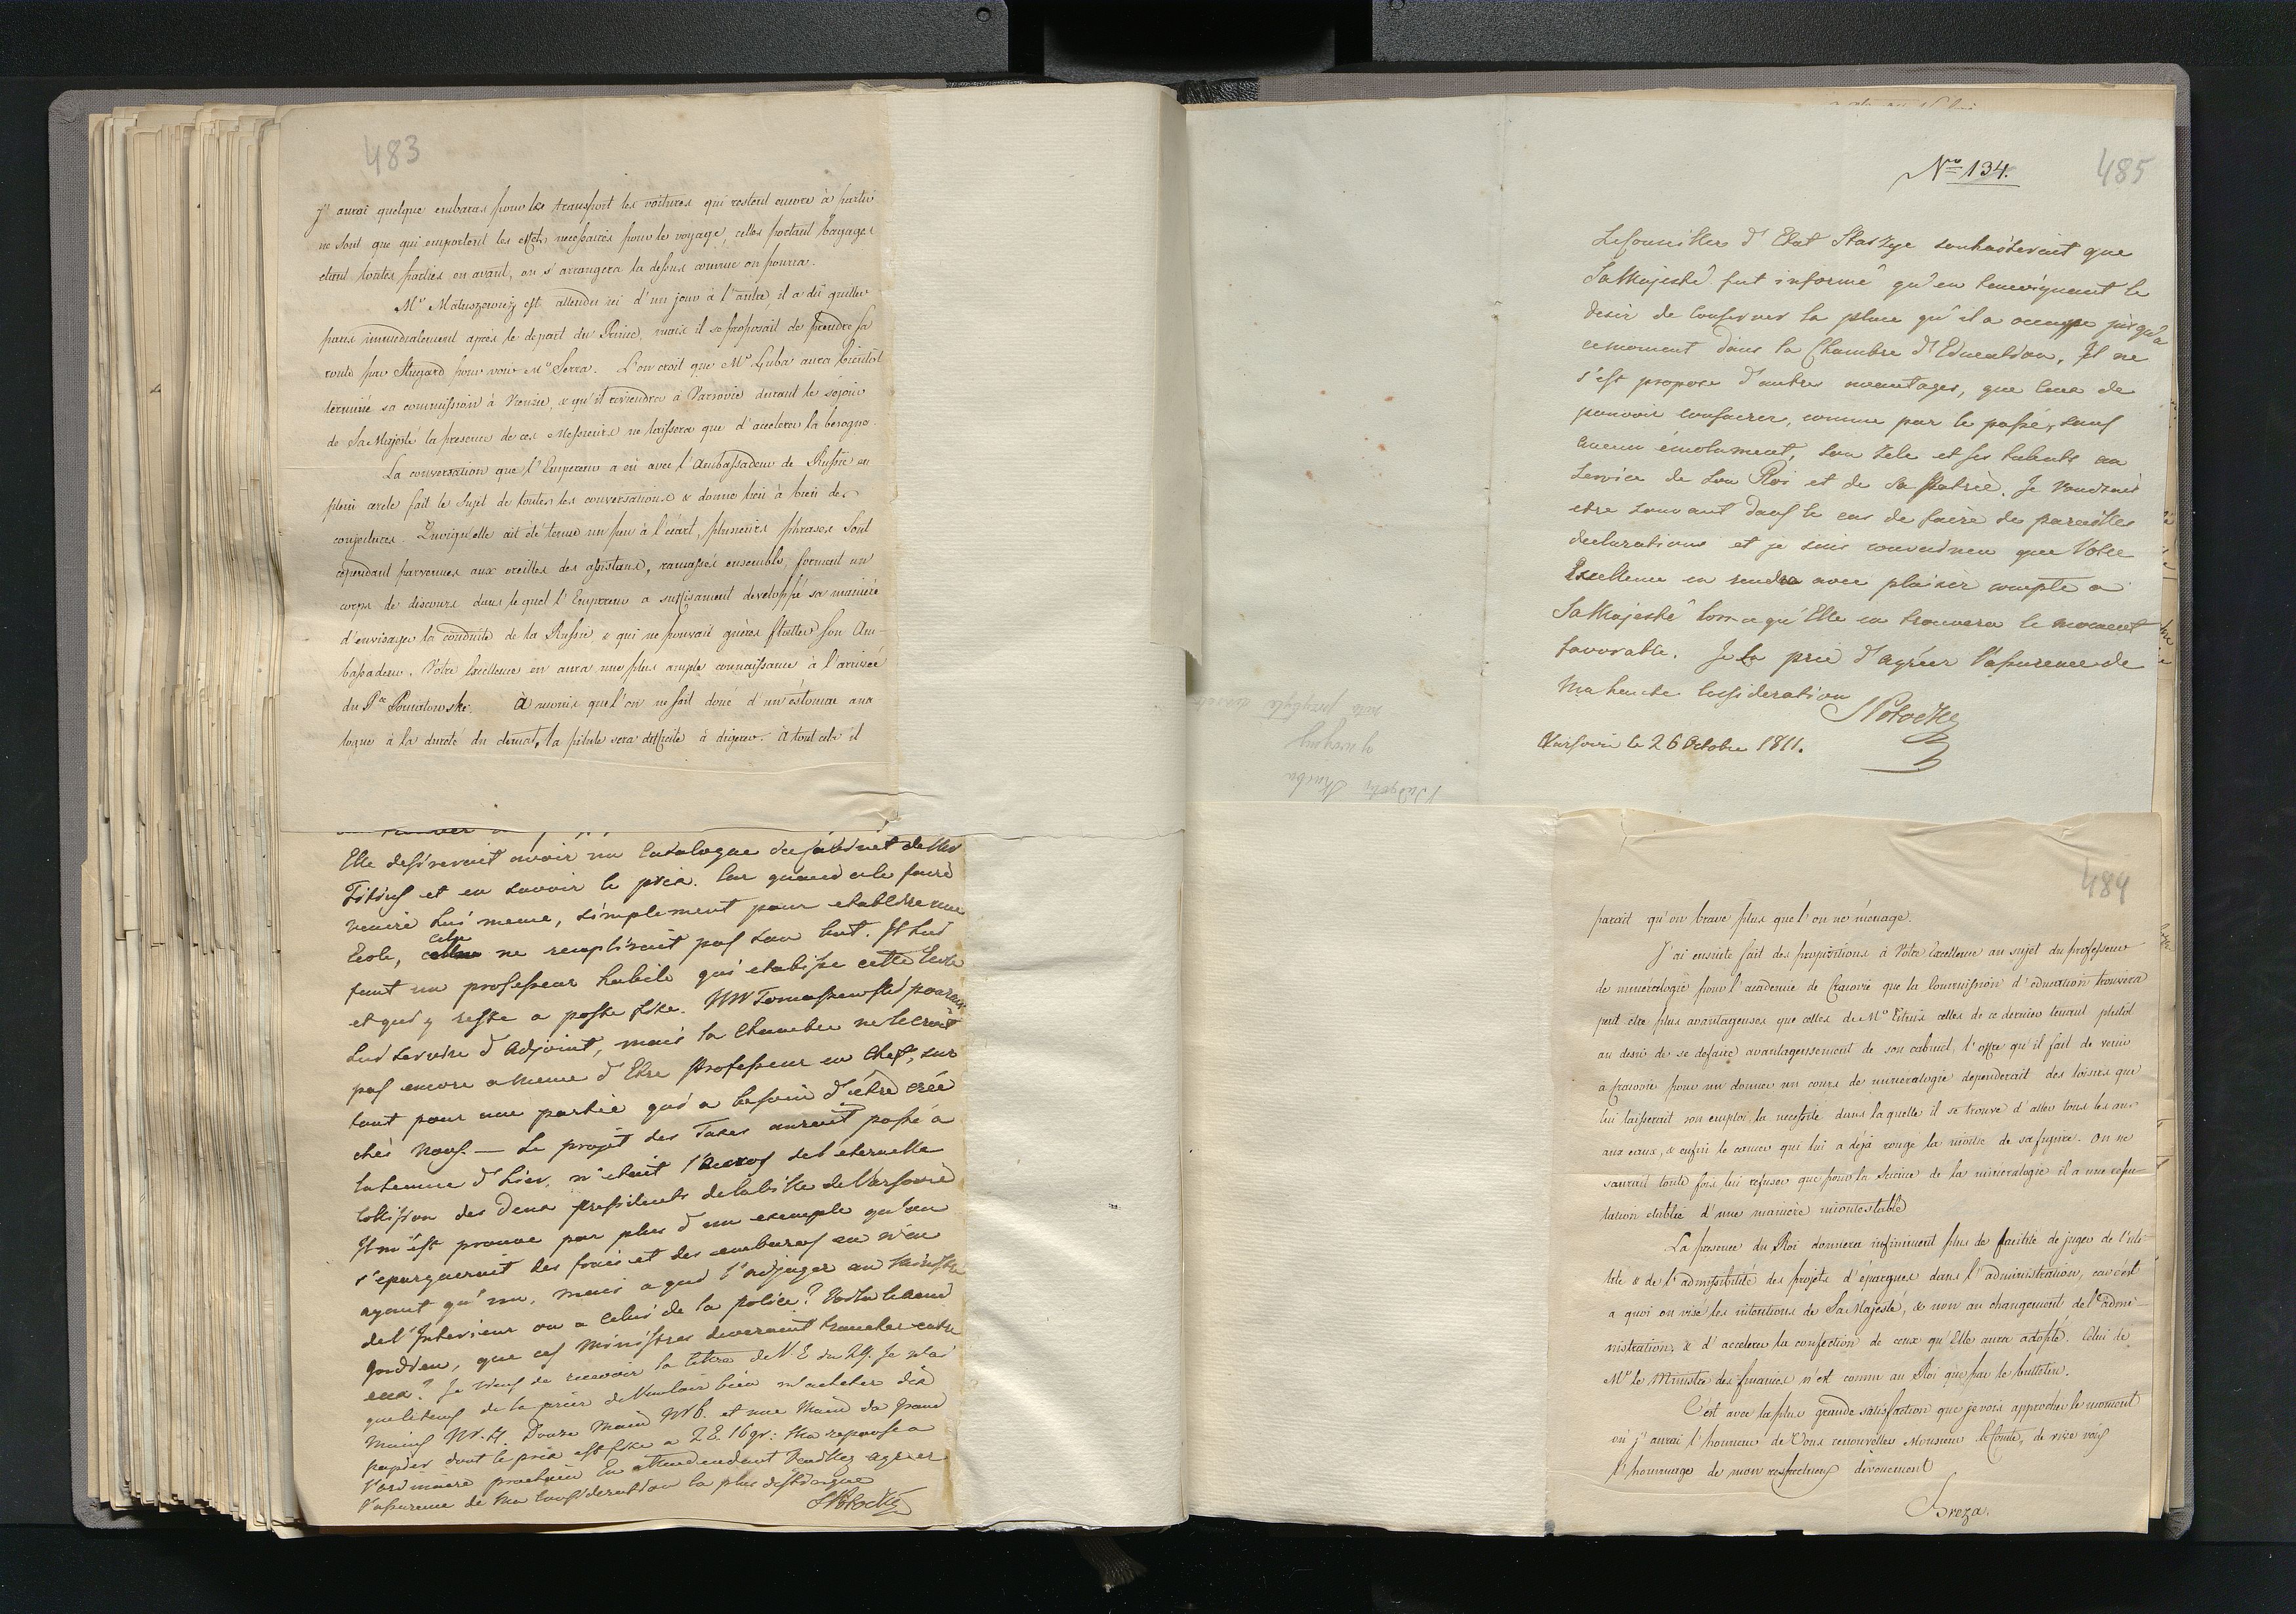 483
j'aurai quelque embaras pour le transport les voitures qui restent encore à partir
ne sont que qui emportent les effets necessaires pour le voyage, celles portant bagages
etant toutes parties en avant, on s'arrangera la dessus comme on pourra.
Mr Matuszewicz est attendu ici d'un jour à l'autre, il a dû quitter
paris immediatement après le depart du Prince, mais il se proposait de prendre sa
route par Stugard pour voir Mr Serra. L'on croit que Mr Luba aura bientôt
terminé sa commission à Vienne, & qu'il reviendra à Varsovie durant le sejour
de Sa Majesté la presence de ces Messieurs ne laissera que d'accelerer la besogne.
La conversation que l'Empereur a eü avec l'Ambassadeur de Russie en
plein cercle fait le sujet de toutes les conversations & donne lieu à bien des
conjectures. Quoiqu'elle ait été tenue un peu à l'écart, plusieurs phrases sont
cependant parvenues aux oreilles des assistans, ramassés ensemble, forment un
corps de discours dans le quel l'Empereur a suffisament developpé sa manière
d'envisager la conduite de la Russie, & qui ne pouvait guères flatter son Am-
bassadeur. Votre Excellence en aura une plus ample connaissance à l'arrivée
du Pce Poniatowski. à moins que l'on ne soit doué d'un estomac ana
logue à la dureté du climat, la pilule sera difficile à digerer. A tout cela il
Elle desirerait avoir un Catalogue du Cabinet de Mr
Titius et en savoir le prix. Car quand a le faire
venire lui meme, simplement pour etablire une
Ecole, cela ne remplirait pas son but. Il lui
faut un professeur habile qui etablisse cette Ecole
et qui y reste a poste fixe. Mr Tomaszewski pourait
lui servire d'Adjoint, mais la Chambre ne le croit
pas encore a meme d'Etre Professeur en Chef, sur
tout pour une partie qui a besoin d'être crée
chès nous. — Le projet des Taxes auroit passé a
la seance d'hier, n'etait l'Accros de l'eternelle
collision des deux presidents de la Ville de Varsovie
Il m'est prouvé par plus d'un exemple qu'on
s'epargnerait des frais et des embaras en n'en
ayant qu'un, mais a qui l'adjuger au Ministre
de l'Interieur ou a Celui de la police? Voila le noeud
gordien, que ces Ministres devroient trancher entre
eux? Je viens de recevoir la lettre de V. E du 29. Je n'ai
que le tems de la prier de Vouloir bien m'acheter dix
Mains Nr. 4. Douze Mains Nr 6. et une Main du grand
papier dont le prix est fixé a 2 E. 16 gr: Ma reponse a
l'ordinaire prochain En attendendant Veuillez agréer
l'assurence de Ma Consideration la plus distinguée
SPotocki
Nro 134.
485
Le Conseillers d'Etat Staszyc souhaiterait que
Sa Majesté fut informé qu'en temoignant le
desir de Conserver la place qu'il a occuppé jusqu'a
ce moment dans la Chambre d'Education, Il ne
s'est proposé d'autres avantages, que ceux de
pouvoir consacrer, comme par le passé, sans
aucun émolument, son Zele et ses talents au
Service de son Roi et de Sa Patrie. Je voudrais
etre souvant dans le cas de faire de pareilles
declarations et je suis convaincu que Votre
Excellence en rendra avec plaisir compte a
Sa Majesté lorsqu'Elle en trouvera le moment
favorable. Je la prie d'agréer l'assurence de
Ma haute Consideration
SPotocki
Varsovie le 26 Octobre 1811.
484
parait qu'on brave plus que l'on ne ménage.
J'ai ensuite fait des propositions à Votre Excellence au sujet du professeur
de mineralogie pour l'academie de Cracovie que la Commission d'education trouvera
peut etre plus avantageuses que celles de Mr Titius celles de ce dernier tenant plutôt
au desir de se defaire avantageusement de son cabinet, l'offre qu'il fait de venir
a Cracovie pour un donner un cours de mineralogie dependerait des loisirs que
lui laisserait son emploi, la necessité dans la quelle il se trouve d'aller tous les ans
aux eaux, & enfin le cancer qui lui a déjà rongé la moitié de sa figure. On ne
saurait toute fois lui refuser que pour la Science de la mineralogie il a une repu-
tation etablie d'une manière incontestable
La presence du Roi donnera infiniment plus de facilité de juger de l'uti-
lité & de l'admissibilité des projets d'épargnes dans l'administration, car c'est
a quoi on visé les intentions de Sa Majesté, & non au changement de l'admi-
nistration, & d'accelerer la confection de ceux qu'Elle aura adopté. Celui de
Mr le Ministre des finances n'est connu au Roi que par le bulletin.
C'est avec la plus grande satisfaction que je vois approcher le moment
où j'aurai l'honneur de Vous renouveller Monsieur le Comte, de vive voix
l'hommage de mon respectueux dévouement
Breza.